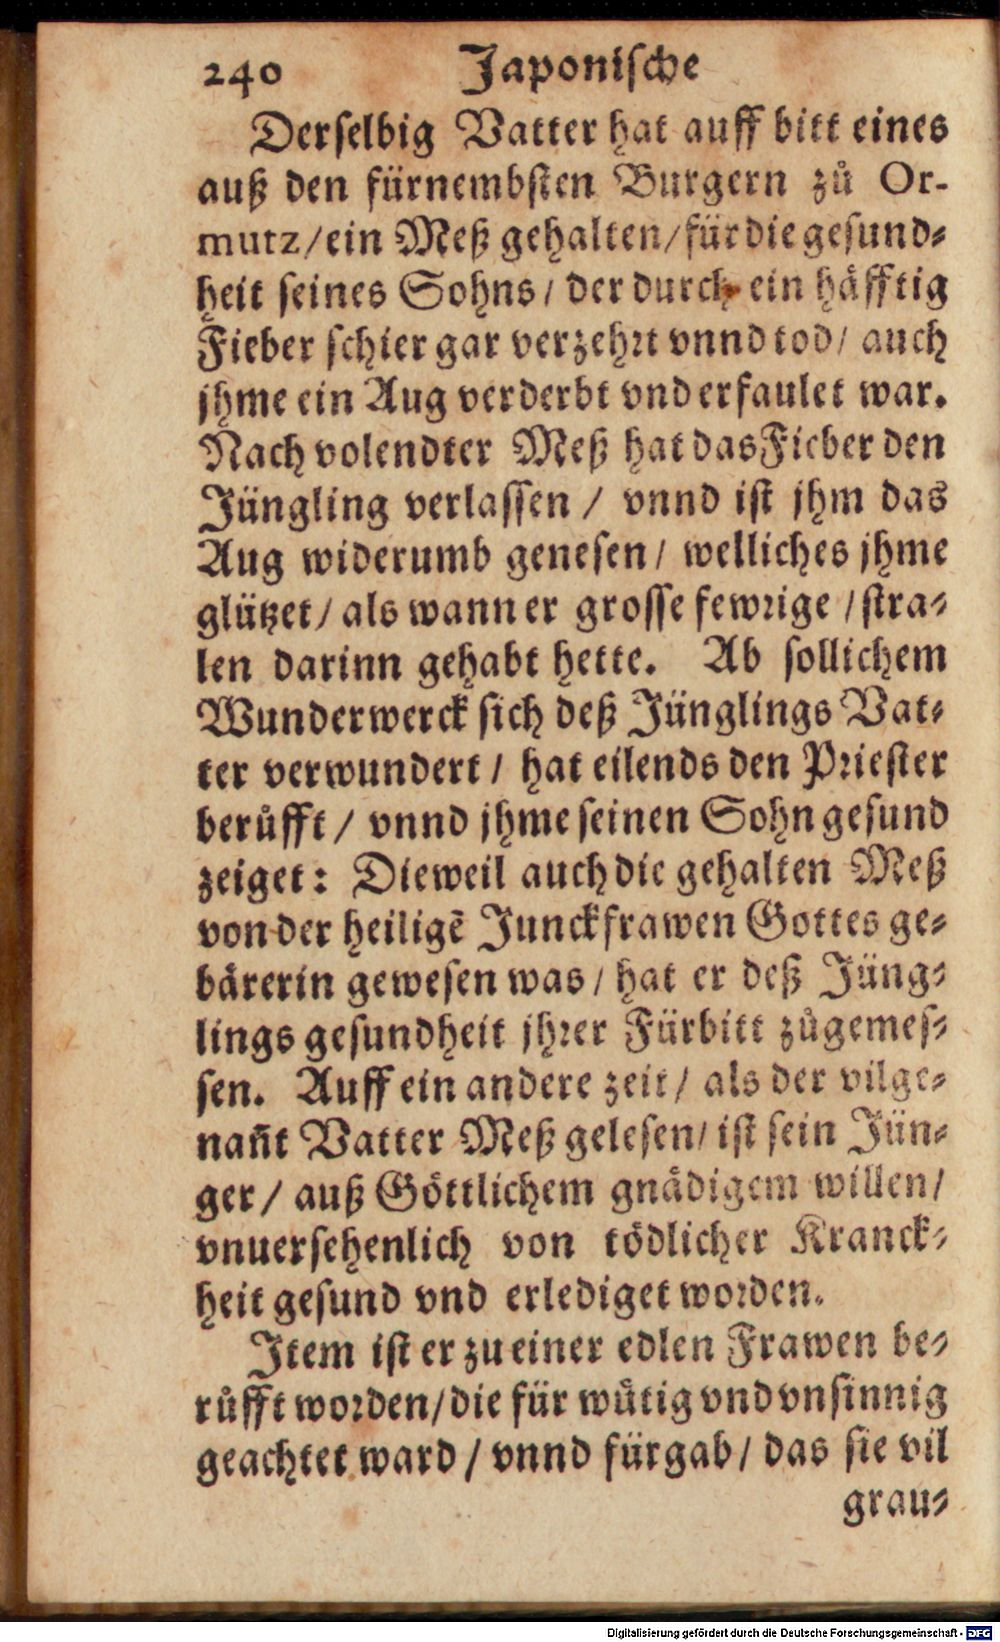 240 Japonische
Derselbig Vatter hat auff bitt eines
auß den fürnembsten Burgern zů Or-
mutz/ein Meß gehalten/für die gesund-
heit seines Sohns/ der durch ein häfftig
Fieber schier gar verzehrt vnnd tod/ auch
jhme ein Aug verderbt vnd erfaulet war.
Nach volendter Meß hat das Fieber den
Jüngling verlassen / vnnd ist jhm das
Aug widerumb genesen/ welliches jhme
glützet/ als wann er grosse fewrige /stra-
len darinn gehabt hette. Ab sollichem
Wunderwerck sich deß Jünglings Vat-
ter verwundert / hat eilends den Priester
berůfft / vnnd jhme seinen Sohn gesund
zeiget: Dieweil auch die gehalten Meß
von der heiligē Junckfrawen Gottes ge-
bärerin gewesen was / hat er deß Jüng-
lings gesundheit jhrer Fürbitt zůgemes-
sen. Auff ein andere zeit/ als der vilge-
nañt Vatter Meß gelesen/ ist sein Jün-
ger / auß Göttlichem gnädigem willen/
vnuersehenlich von tödlicher Kranck-
heit gesund vnd erlediget worden.
Item ist er zu einer edlen Frawen be-
růfft worden/die für wütig vnd vnsinnig
geachtet ward / vnnd fürgab/ das sie vil
grau-
Digitalisierung gefördert durch die Deutsche Forschungsgemeinschaft - DFG